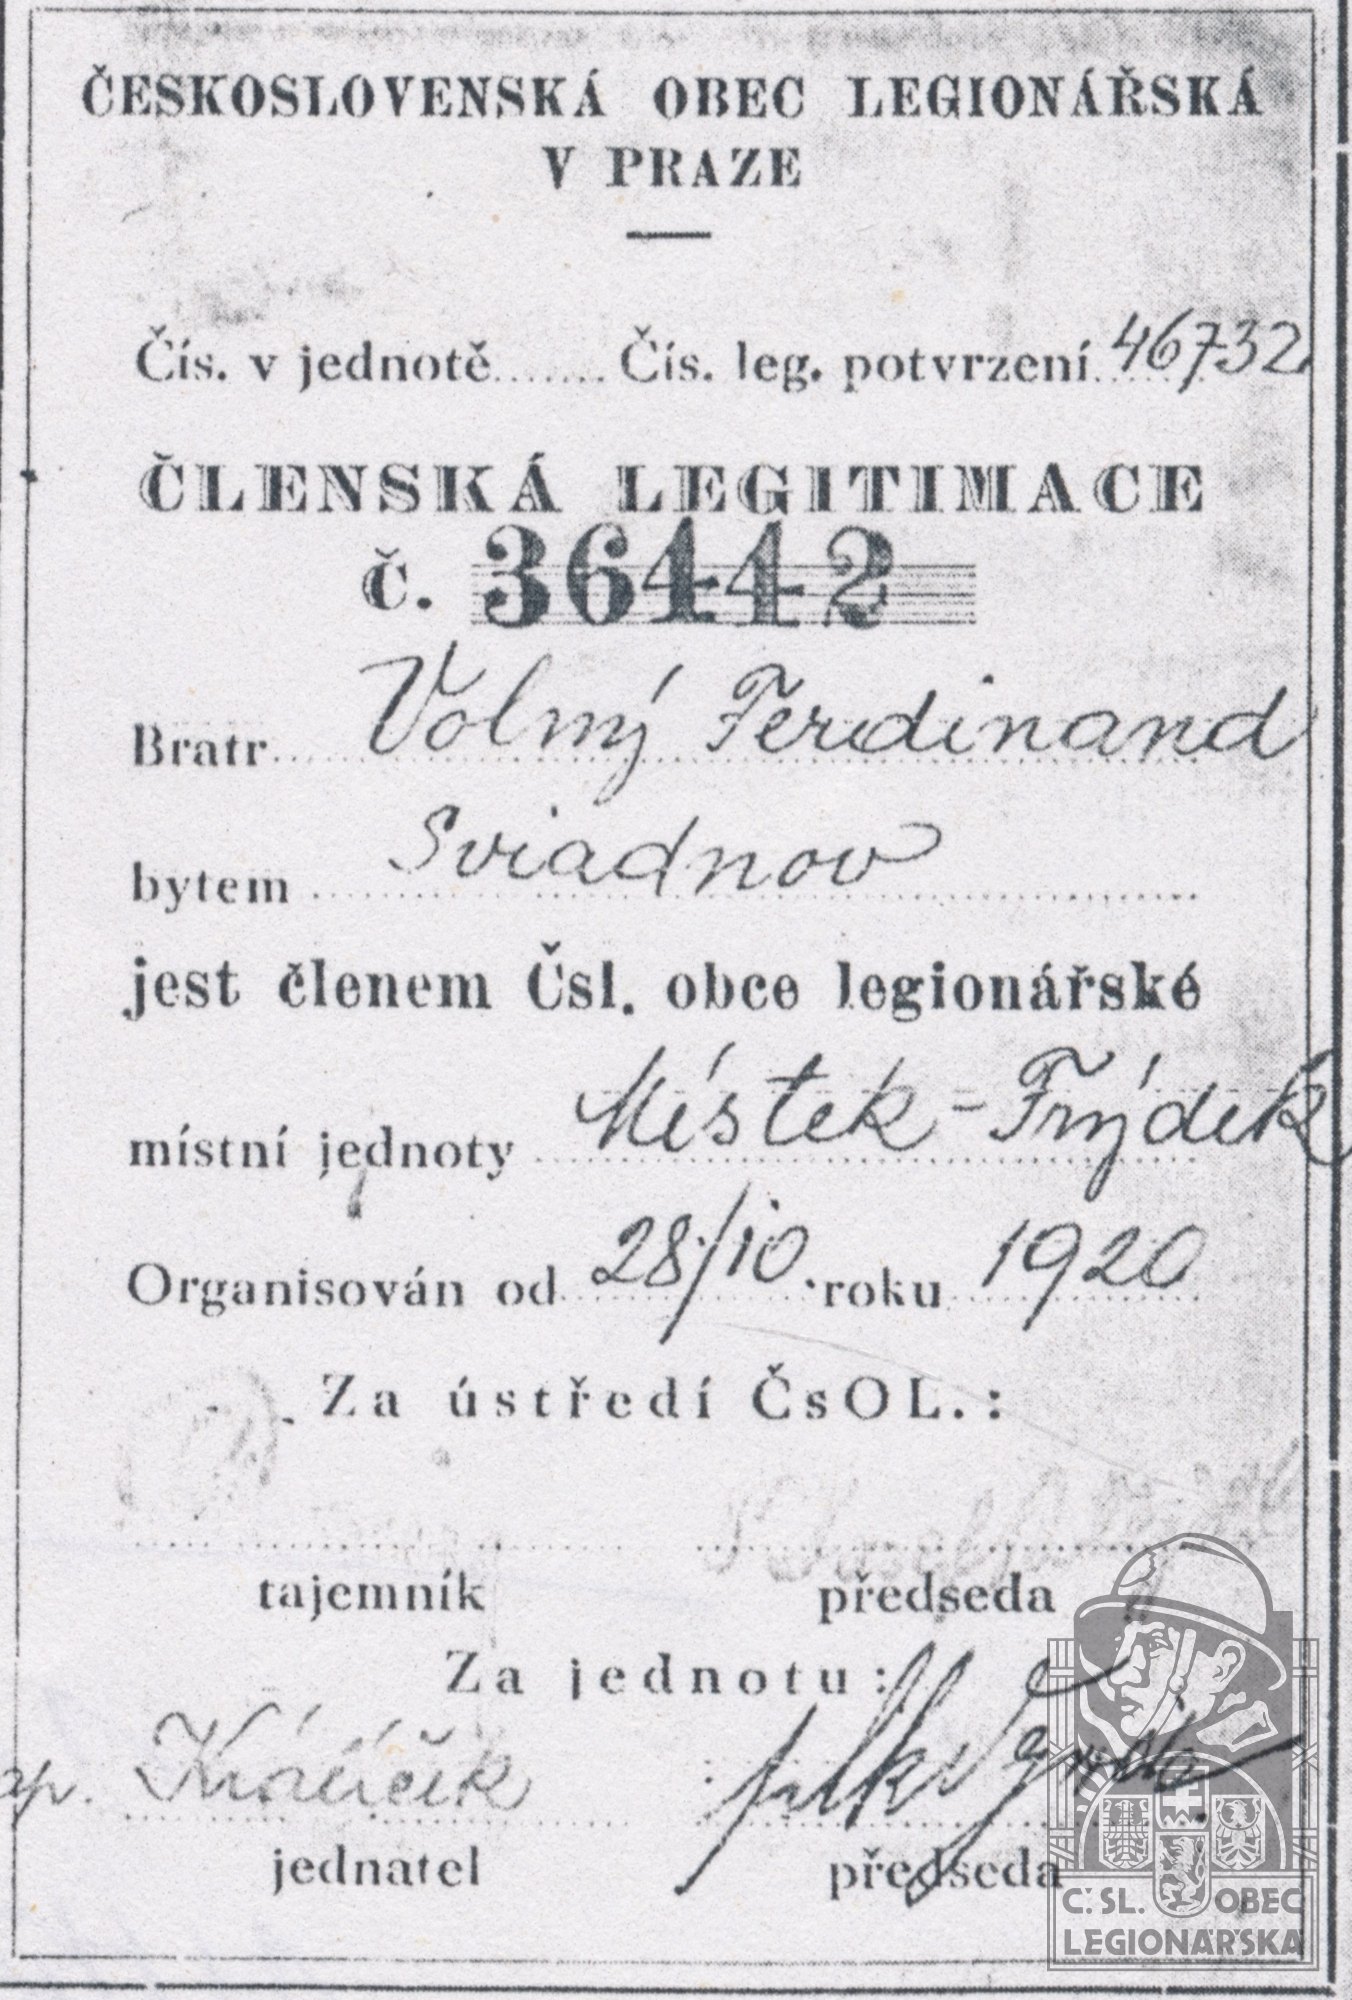 ČESKOSLOVENSKÁ OBEC LEGIONÁŘSKÁ
V PRAZE
Čís. v jednotě....... Čís. leg. potvrzení 46732
ČLENSKÁ LEGITIMACE
č. 36442
Bratr Volný Ferdinand
bytem Sviadnov
jest členem Čsl. obce legionářské
místní jednoty Místek-Frýdek
Organisován od 28/10. roku 1920
Za ústředí ČsOL.:
tajemník předseda
Za jednotu:
jednatel předseda
Č.SL. OBEC
LEGIONÁŘSKÁ